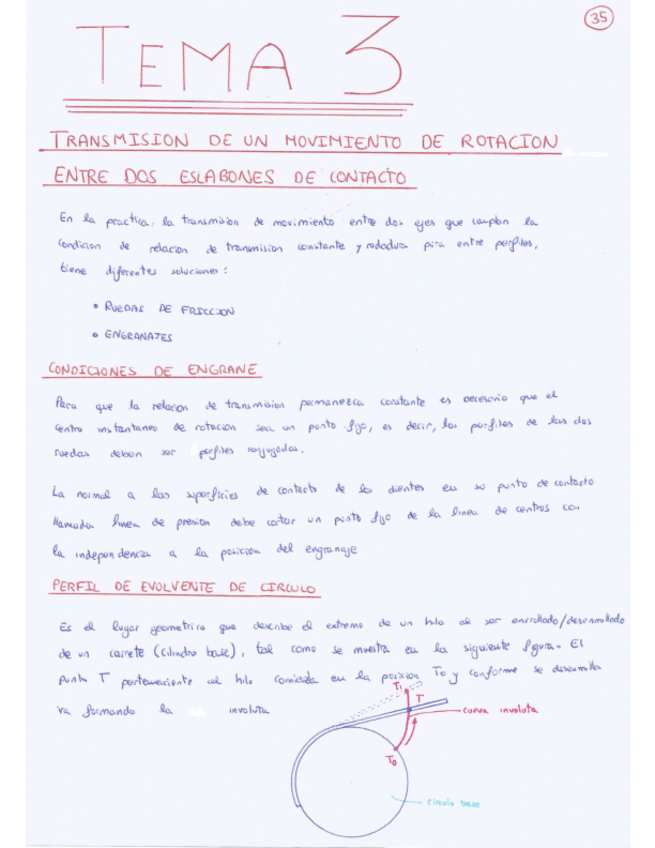 35
TEMA 3
TRANSMISION DE UN MOVIMIENTO DE ROTACION
ENTRE DOS ESLABONES DE CONTACTO
En la practica, la transmision de movimiento entre dos ejes que cumplan la
condicion de relacion de transmision constante y rodadura pura entre perfiles,
tiene diferentes soluciones:
• RUEDAS DE FRICCION
• ENGRANAJES
CONDICIONES DE ENGRANE
Para que la relacion de transmision permanezca constante es necesario que el
centro instantaneo de rotacion sea un punto fijo, es decir, los perfiles de las dos
ruedas deben ser perfiles conjugados.
La normal a las superficies de contacto de los dientes en su punto de contacto
llamada linea de presion debe cortar un punto fijo de la linea de centros con
la independencia a la posicion del engranaje
PERFIL DE EVOLVENTE DE CIRCULO
Es el lugar geometrico que describe el extremo de un hilo al ser enrrollado/desenrrollado
de un carrete (cilindro base), tal como se muestra en la siguiente figura. El
punto T perteneciente al hilo comienza en la posicion To y conforme se desenrrolla
va formando la involuta
T1
T
curva involuta
To
circulo base